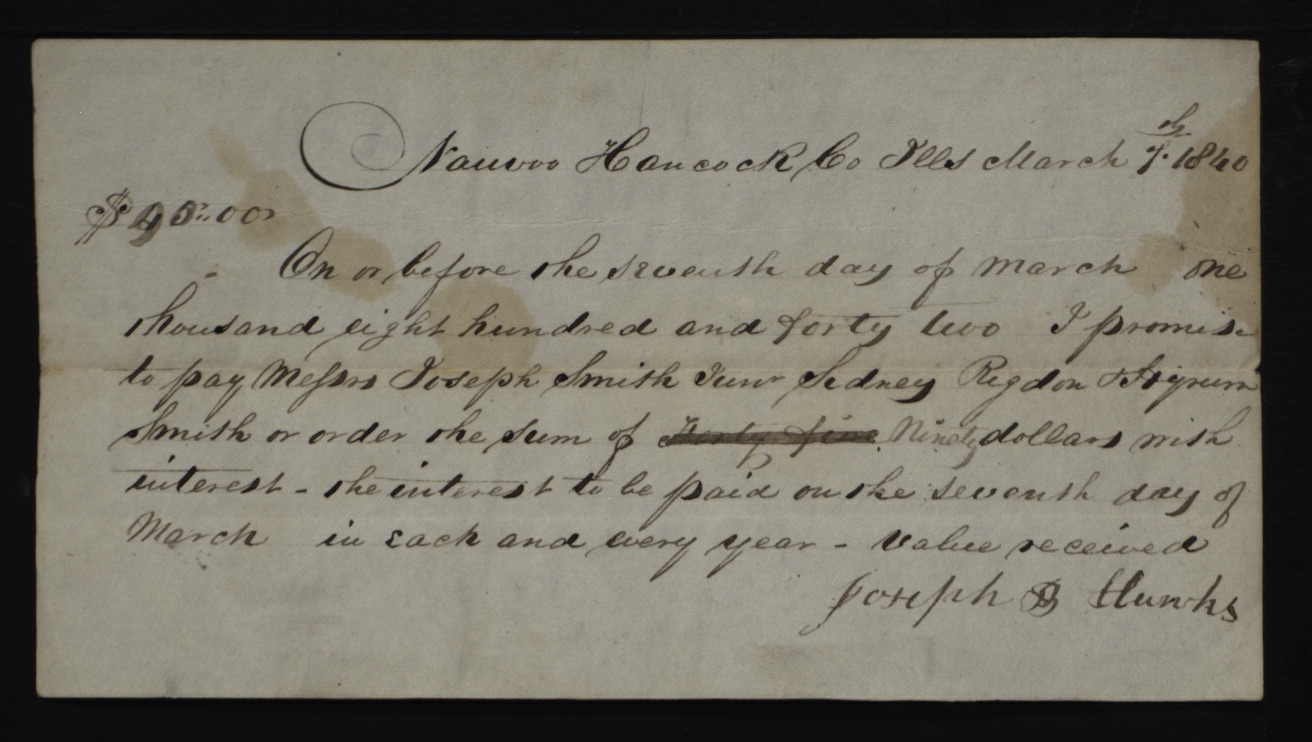 Nauvoo Hancock Co Ills March 7th 1840
$90.00
On or before the seventh day of March one
thousand eight hundred and forty two I promise
to pay Messrs Joseph Smith Junr Sidney Rigdon & Hyrum
Smith or order the sum of Forty five Ninety dollars with
interest - the interest to be paid on the seventh day of
March in each and every year - Value received
Joseph B Hawks